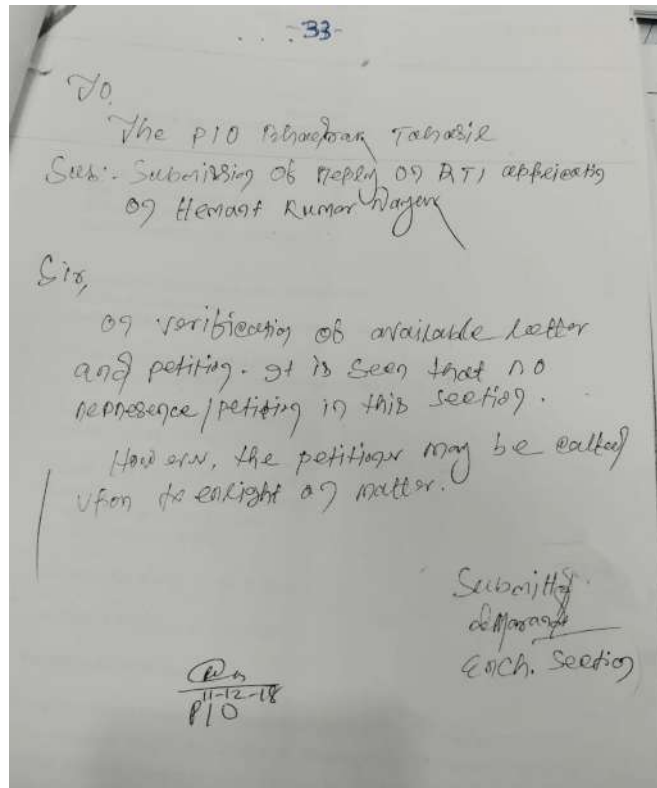 -33-
To,
The PIO Bhadrak Tahasil
Sub:- Submission of Reply on RTI application
of Hemant Kumar Nayak
Sir,
on verification of available letter
and petition. It is seen that no
/petition in this section.
However, the petitioner may be called
upon to enlight on matter.
Submitted
Ench. Section
11-12-18
PIO